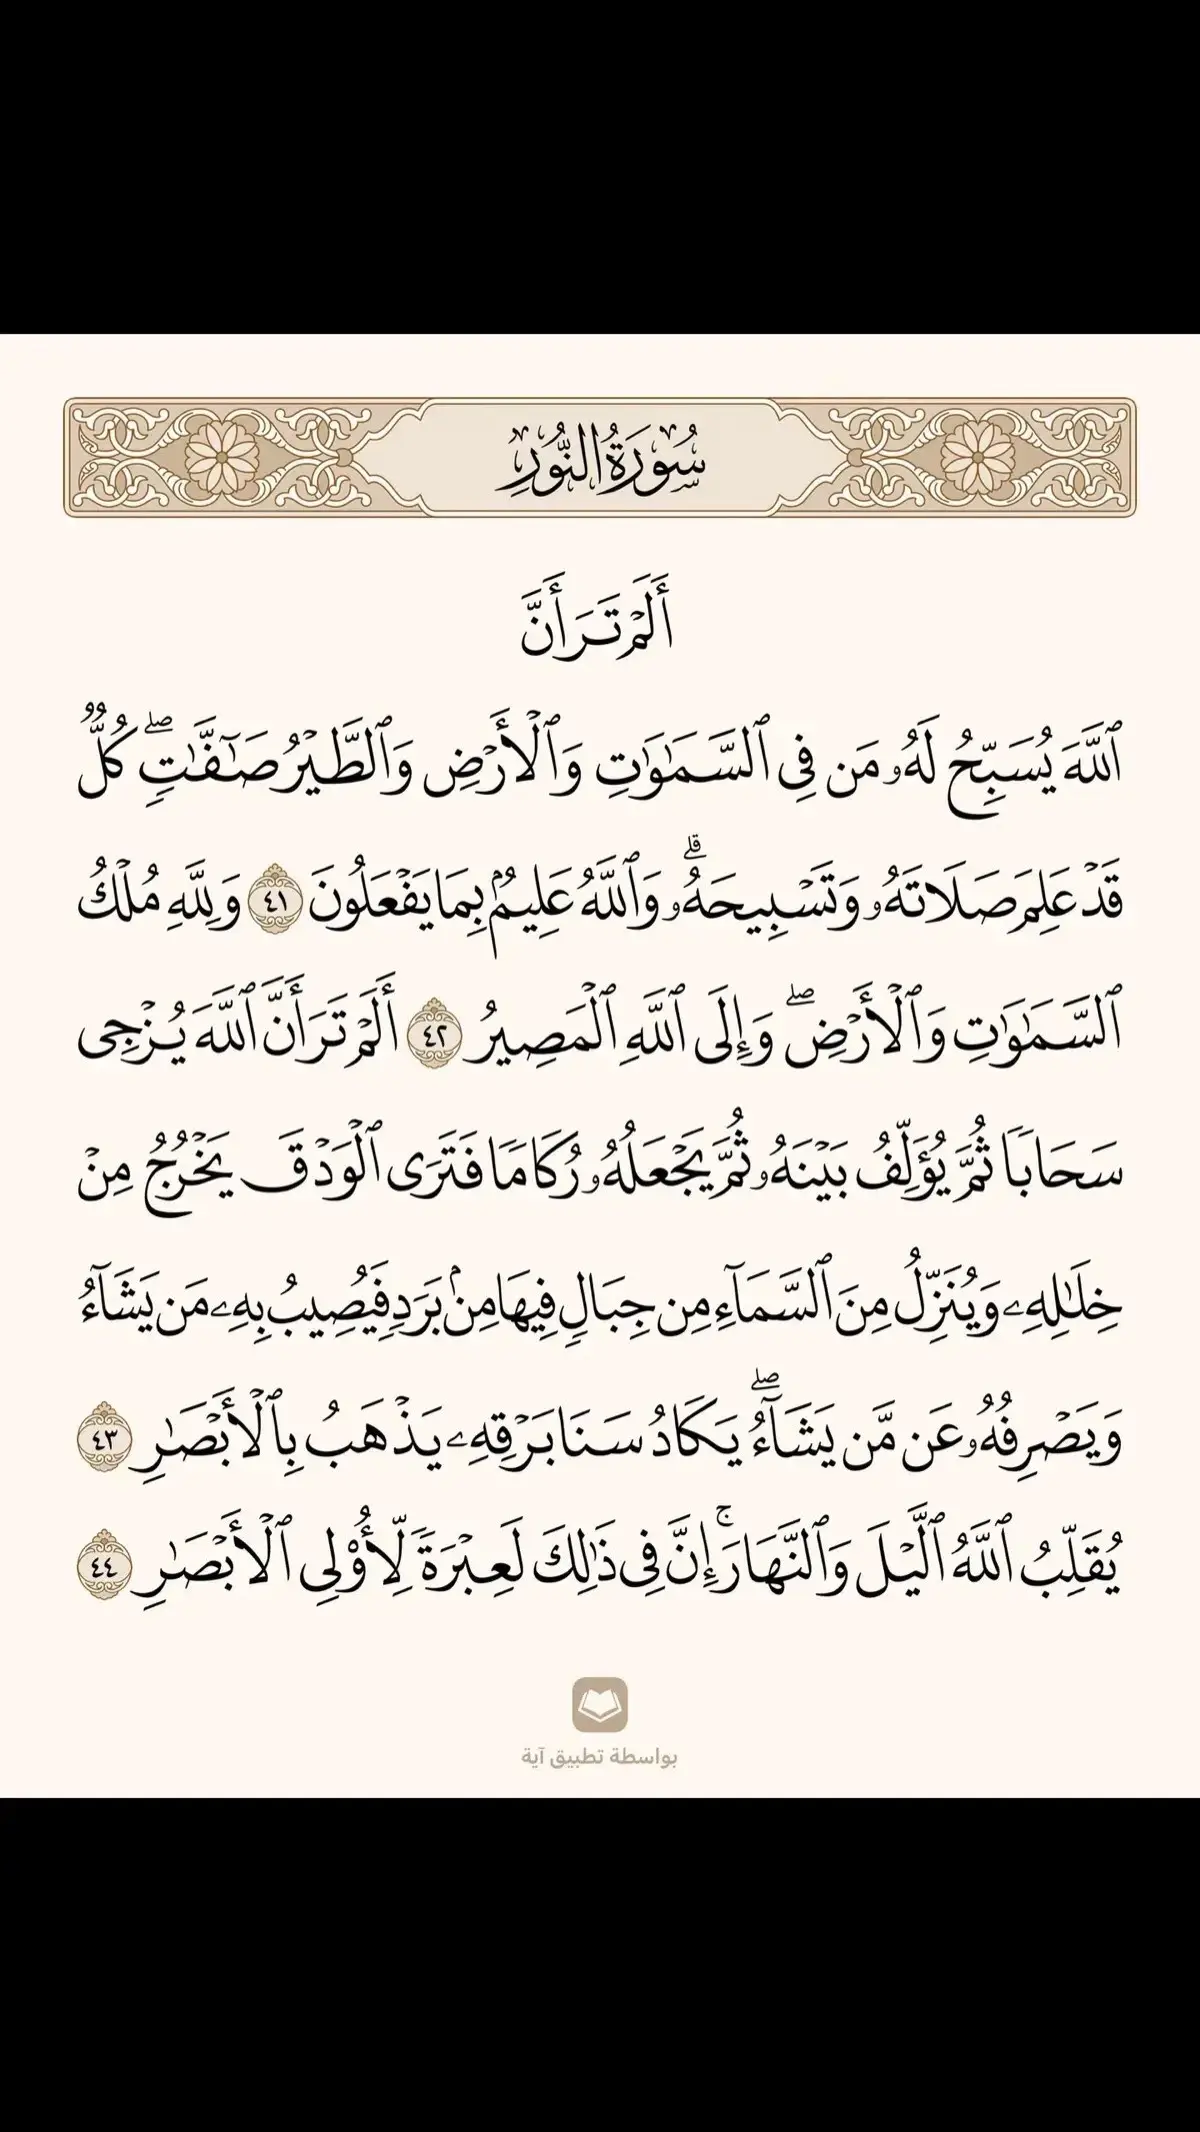 سُورَةُ النُّورِ
أَلَمْ تَرَ أَنَّ
ٱللَّهَ يُسَبِّحُ لَهُۥ مَن فِى ٱلسَّمَٰوَٰتِ وَٱلْأَرْضِ وَٱلطَّيْرُ صَٰٓفَّٰتٍۢ ۖ كُلٌّۭ
قَدْ عَلِمَ صَلَاتَهُۥ وَتَسْبِيحَهُۥ ۗ وَٱللَّهُ عَلِيمٌۢ بِمَا يَفْعَلُونَ ٤١ وَلِلَّهِ مُلْكُ
ٱلسَّمَٰوَٰتِ وَٱلْأَرْضِ ۖ وَإِلَى ٱللَّهِ ٱلْمَصِيرُ ٤٢ أَلَمْ تَرَ أَنَّ ٱللَّهَ يُزْجِى
سَحَابًۭا ثُمَّ يُؤَلِّفُ بَيْنَهُۥ ثُمَّ يَجْعَلُهُۥ رُكَامًۭا فَتَرَى ٱلْوَدْقَ يَخْرُجُ مِنْ
خِلَٰلِهِۦ وَيُنَزِّلُ مِنَ ٱلسَّمَآءِ مِن جِبَالٍۢ فِيهَا مِنۢ بَرَدٍۢ فَيُصِيبُ بِهِۦ مَن يَشَآءُ
وَيَصْرِفُهُۥ عَن مَّن يَشَآءُ ۖ يَكَادُ سَنَا بَرْقِهِۦ يَذْهَبُ بِٱلْأَبْصَٰرِ ٤٣
يُقَلِّبُ ٱللَّهُ ٱلَّيْلَ وَٱلنَّهَارَ ۚ إِنَّ فِى ذَٰلِكَ لَعِبْرَةًۭ لِّأُو۟لِى ٱلْأَبْصَٰرِ ٤٤
بواسطة تطبيق آية